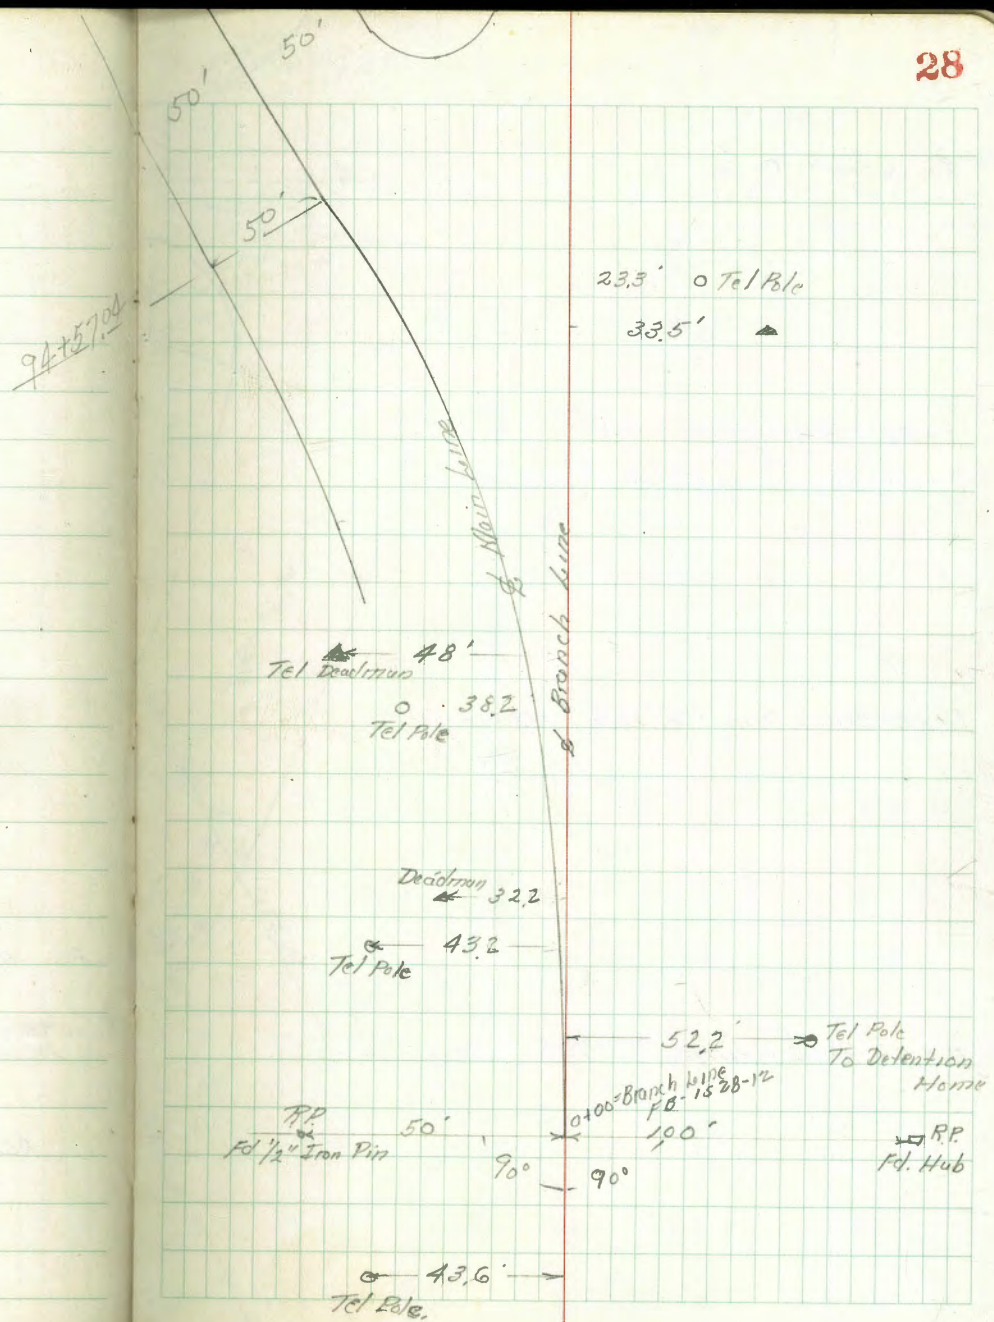 28
50'
50'
50'
94+57.04
23.3' Tel Pole
33.5'
℄ Main Line
℄ Branch Line
48'
Tel Deadman
38.2
Tel Pole
Deadman
32.2
43.2
Tel Pole
52.2'
Tel Pole
To Detention
Home
0+00=Branch Line
FB-1528-12
R.P.
50'
100'
R.P.
Fd 1/2" Iron Pin
Fd. Hub
90° 90°
43.6'
Tel Pole.